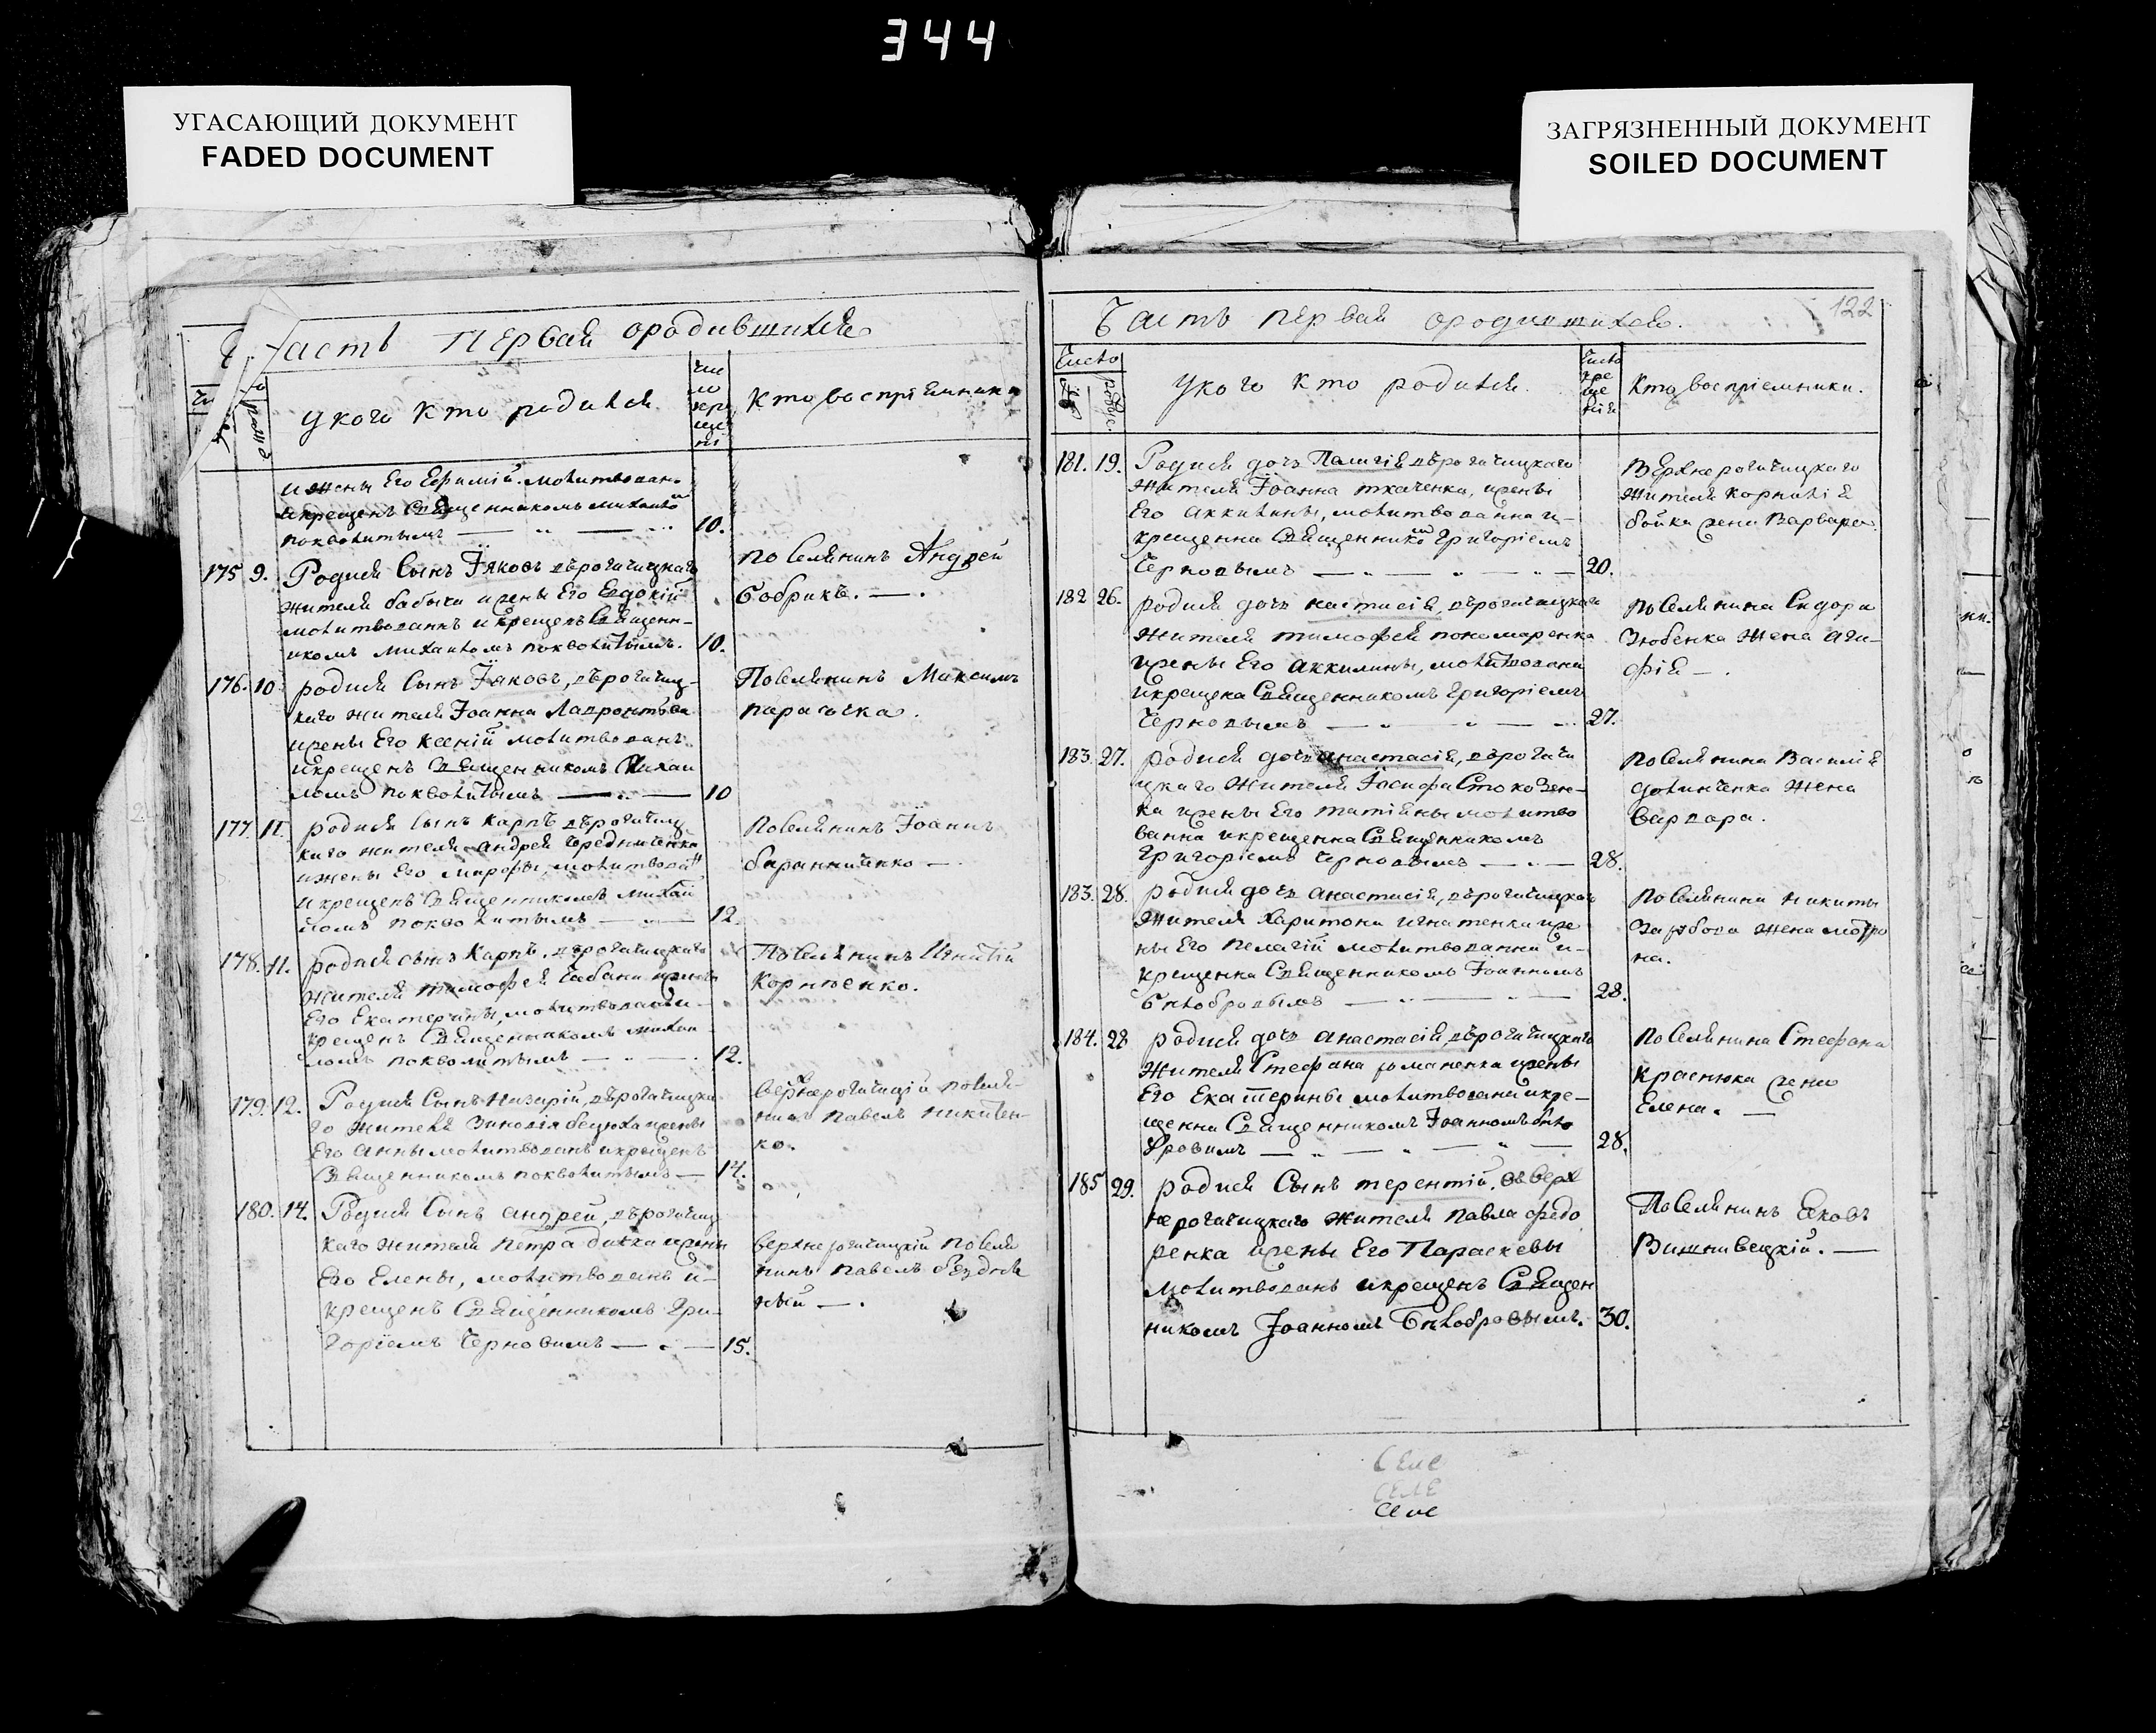 344
УГАСАЮЩИЙ ДОКУМЕНТ
FADED DOCUMENT
ЗАГРЯЗНЕННЫЙ ДОКУМЕНТ
SOILED DOCUMENT
Часть первая ородившихся
у кого кто родился
Кто восприемники
и жены Его Ефимій. молитвован.
и крещенъ Священникомъ михаило
покволитымъ 10.
175 9. Родился Сынъ Іаковъ, вѣрогачицкаго
жителя бабыка и жены Его Евдокій
молитвованъ и крещенъ Священн-
икомъ михаиломъ покволитымъ. 10.
поселянинъ Андрей
бобрикъ.
176. 10. родился Сынъ Іаковъ, вѣрогачиц-
каго жителя Іоанна Лавронтьева
и жены Его Ксеній молитвованъ
и крещенъ Священникомъ Михаи
ломъ покволитымъ 10
Поселянинъ Максимъ
парасочка.
177. 11. родился Сынъ Карпъ вѣрогачиц
каго жителя андрея Середниченка
и жены Его марфы, молитвован
и крещенъ Священникомъ михаи
ломъ покволитымъ 12.
Поселянинъ Іоаннъ
баранниченко
178. 11. родился сынъ Карпъ, вѣрогачицкаго
жителя тимофея Чабана и жены
Его Екатерины, молитвованъ и
крещенъ Священникомъ михаи
ломъ поквалитымъ 12.
Поселянинъ Игнатій
Корниенко.
179. 12. Родился Сынъ Назарій, вѣрогачицка
го жителя Зиновія бецюха и жены
Его Анны молитвованъ и крещенъ
Священникомъ поквалитымъ 14.
верхнерогачицкій поселя
нинъ Павелъ никитен-
ко.
180. 14. Родился Сынъ андрей, вѣрогачиц
каго жителя петра бичка и жены
Его Елены, молитвованъ и-
крещенъ Священникомъ Гри-
горіемъ Черновимъ 15.
верхнерогачицкій поселя
нинъ Павелъ
ный
Часть первая ородившихся. 122
Число
у кого кто родился.
Число
кре
ще
нія
Кто восприемники.
181. 19. Родися дочь Палагія вѣрогачицкаго
жителя Іоанна ткаченка, и жены
Его Аккилины, молитвованна и-
крещенна Священникомъ Григоріемъ
Черновымъ 20.
Верхнерогачицкаго
жителя Корнилія
бойка жена Варвара.
182 26. родися дочь настасія, вѣрогачицкаго
жителя тимофея пономаренка
и жены Его аккилины, молитвована
и крещена Священникомъ Григоріемъ
Черновымъ 27.
поселянина Сидора
Зюбенка жена ага-
фія
183. 27. родися дочь анастасія, вѣрогачи
цкаго жителя Іосифа Стокозен-
ка и жены Его татіяны молитво
ванна и крещенна Священникомъ
Григоріемъ Черновымъ 28.
поселянина Василія
долинченка жена
варвара.
183. 28. родися дочь анастасія, вѣрогачицкаго
жителя Харитона игнатенка и же
ны Его пелагій молитвованна и-
крещенна Священникомъ Іоанномъ
Бѣлобровымъ 28.
поселянина никиты
жена мотро
на.
184. 28 родися дочь анастасія, вѣрогачицкаго
жителя Стефана романенка и жены
Его Екатерины молитвована и кре-
щенна Священникомъ Іоанномъ бѣло
бровимъ 28.
поселянина Стефана
краснюка жена
Елена.
185 29. родися Сынъ терентій, въ верх
нерогачицкаго жителя Павла федо
ренка и жены Его Параскевы
молитвованъ и крещенъ Священ
никомъ Іоанномъ Бѣлобровымъ. 30.
Поселянинъ Яковъ
Вишнивецкій.
Селе
Селе
Селе